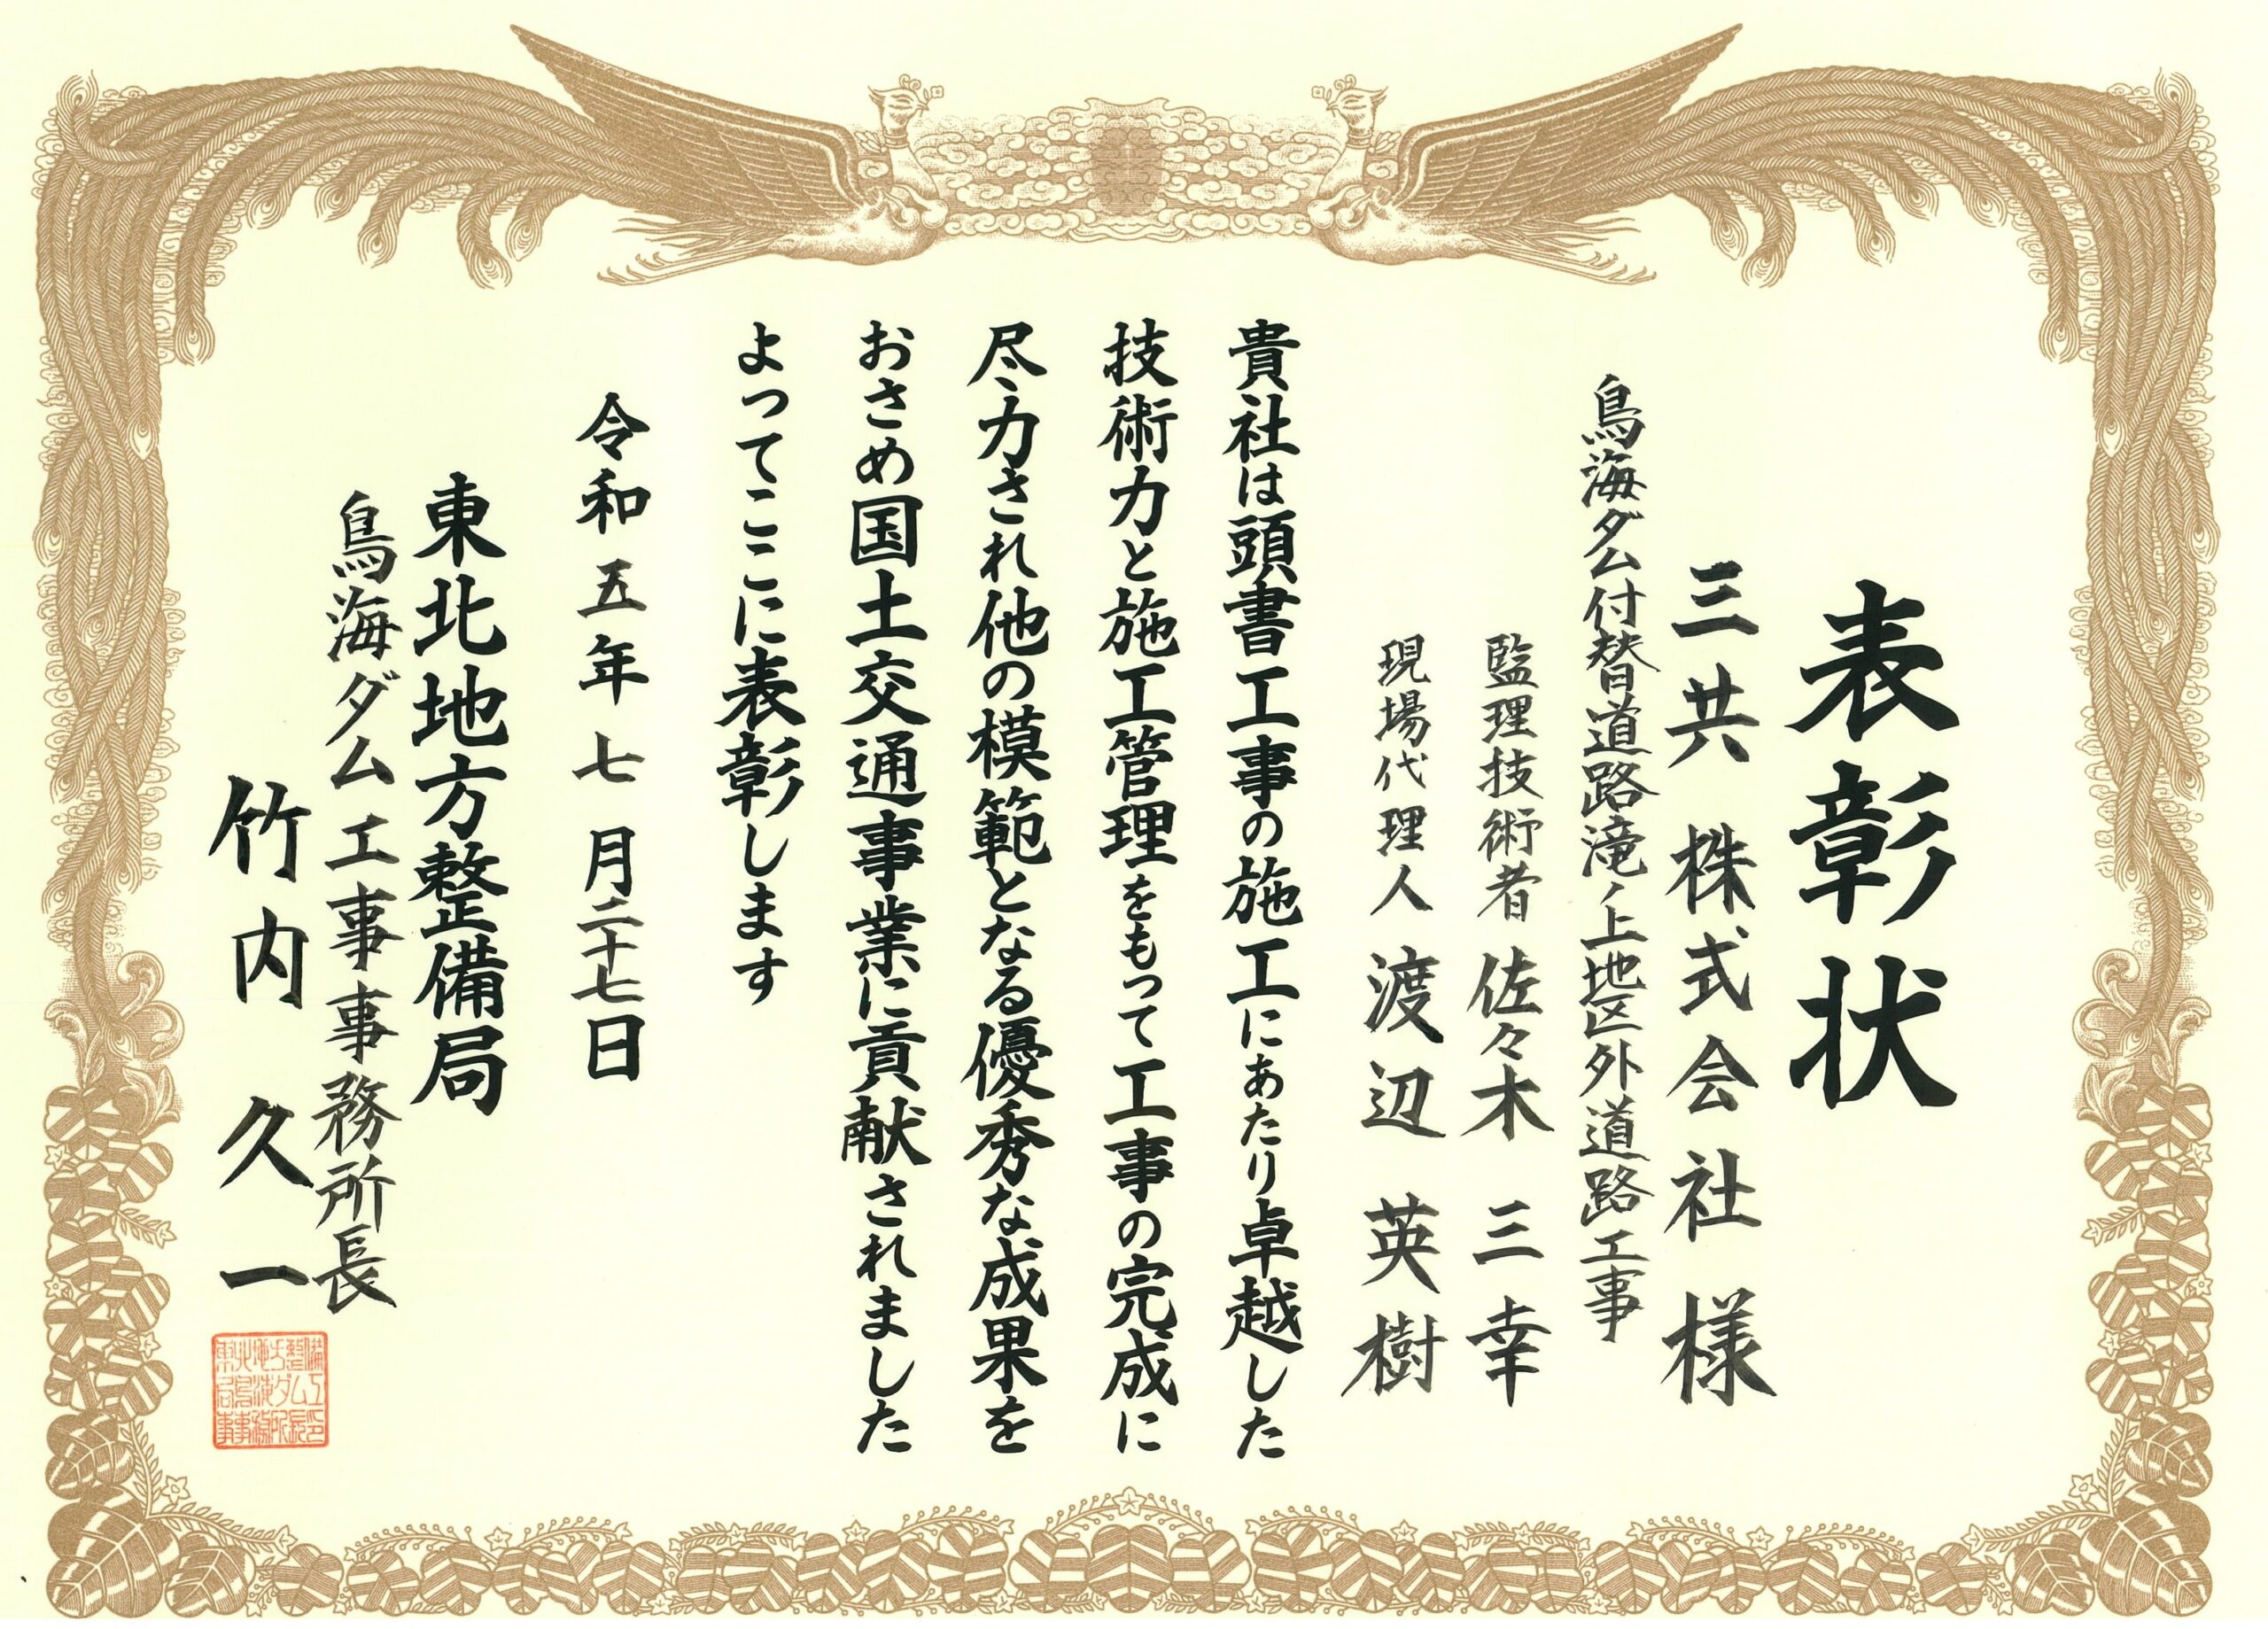 表彰状
三共 株式会社 様
鳥海ダム付替道路滝ノ上地区外道路工事
監理技術者 佐々木 三幸
現場代理人 渡辺 英樹
貴社は頭書工事の施工にあたり卓越した
技術力と施工管理をもって工事の完成に
尽力され他の模範となる優秀な成果を
おさめ国土交通事業に貢献されました
よってここに表彰します
令和五年七月二十七日
東北地方整備局
鳥海ダム工事事務所長
竹内 久一